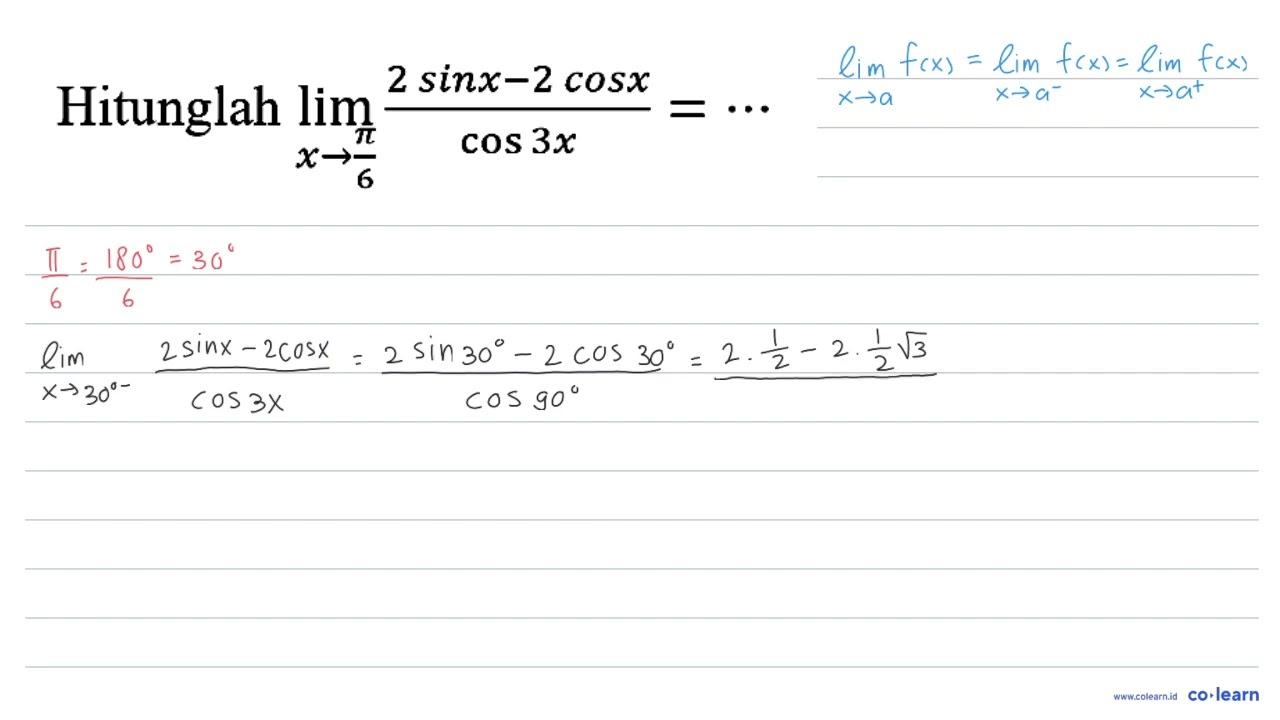 Hitunglah lim x→π/6 (2 sinx−2 cosx)/(cos 3x) = ⋯
lim x→a f(x) = lim x→a⁻ f(x) = lim x→a⁺ f(x)
π/6 = 180°/6 = 30°
lim x→30°⁻ (2 sinx − 2cosx)/(cos 3x) = (2 sin 30° − 2 cos 30°)/(cos 90°) = 2 . 1/2 − 2 . 1/2 √3
www.colearn.id co·learn